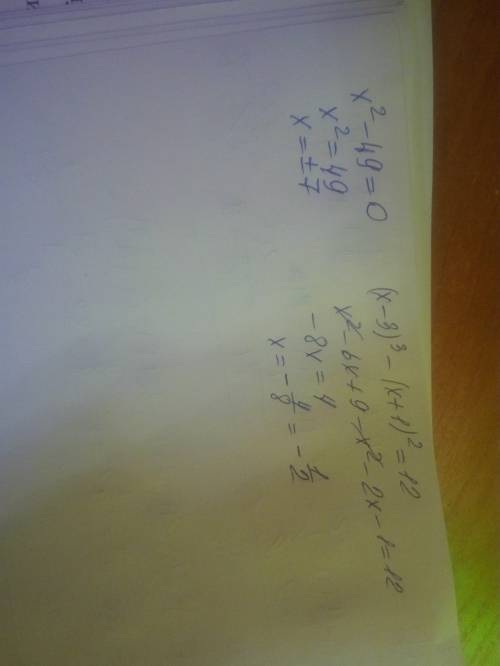 x² - 49 = 0
x² = 49
x = ± 7
(x-3)³ - (x+1)² = 12
x² - 6x + 9 - x² - 2x - 1 = 12
-8x = 4
x = - 4/8 = - 1/2